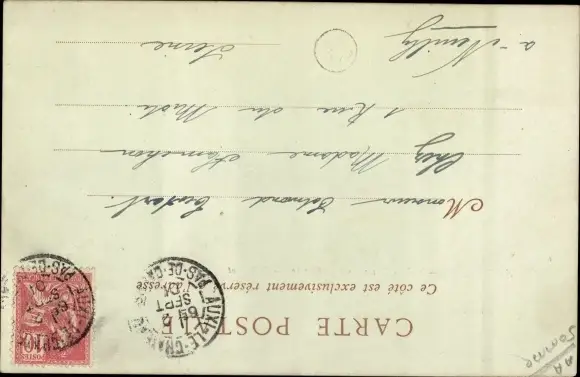 CARTE POSTALE
Ce côté est exclusivement réservé à l'adresse
AUXI-LE-CHATEAU
PAS-DE-CALAIS
SEPT
01
POSTES
10
Monsieur Edmond
Chez Madame
1 Rue du Midi
à Neuilly
Seine
AA
Somme